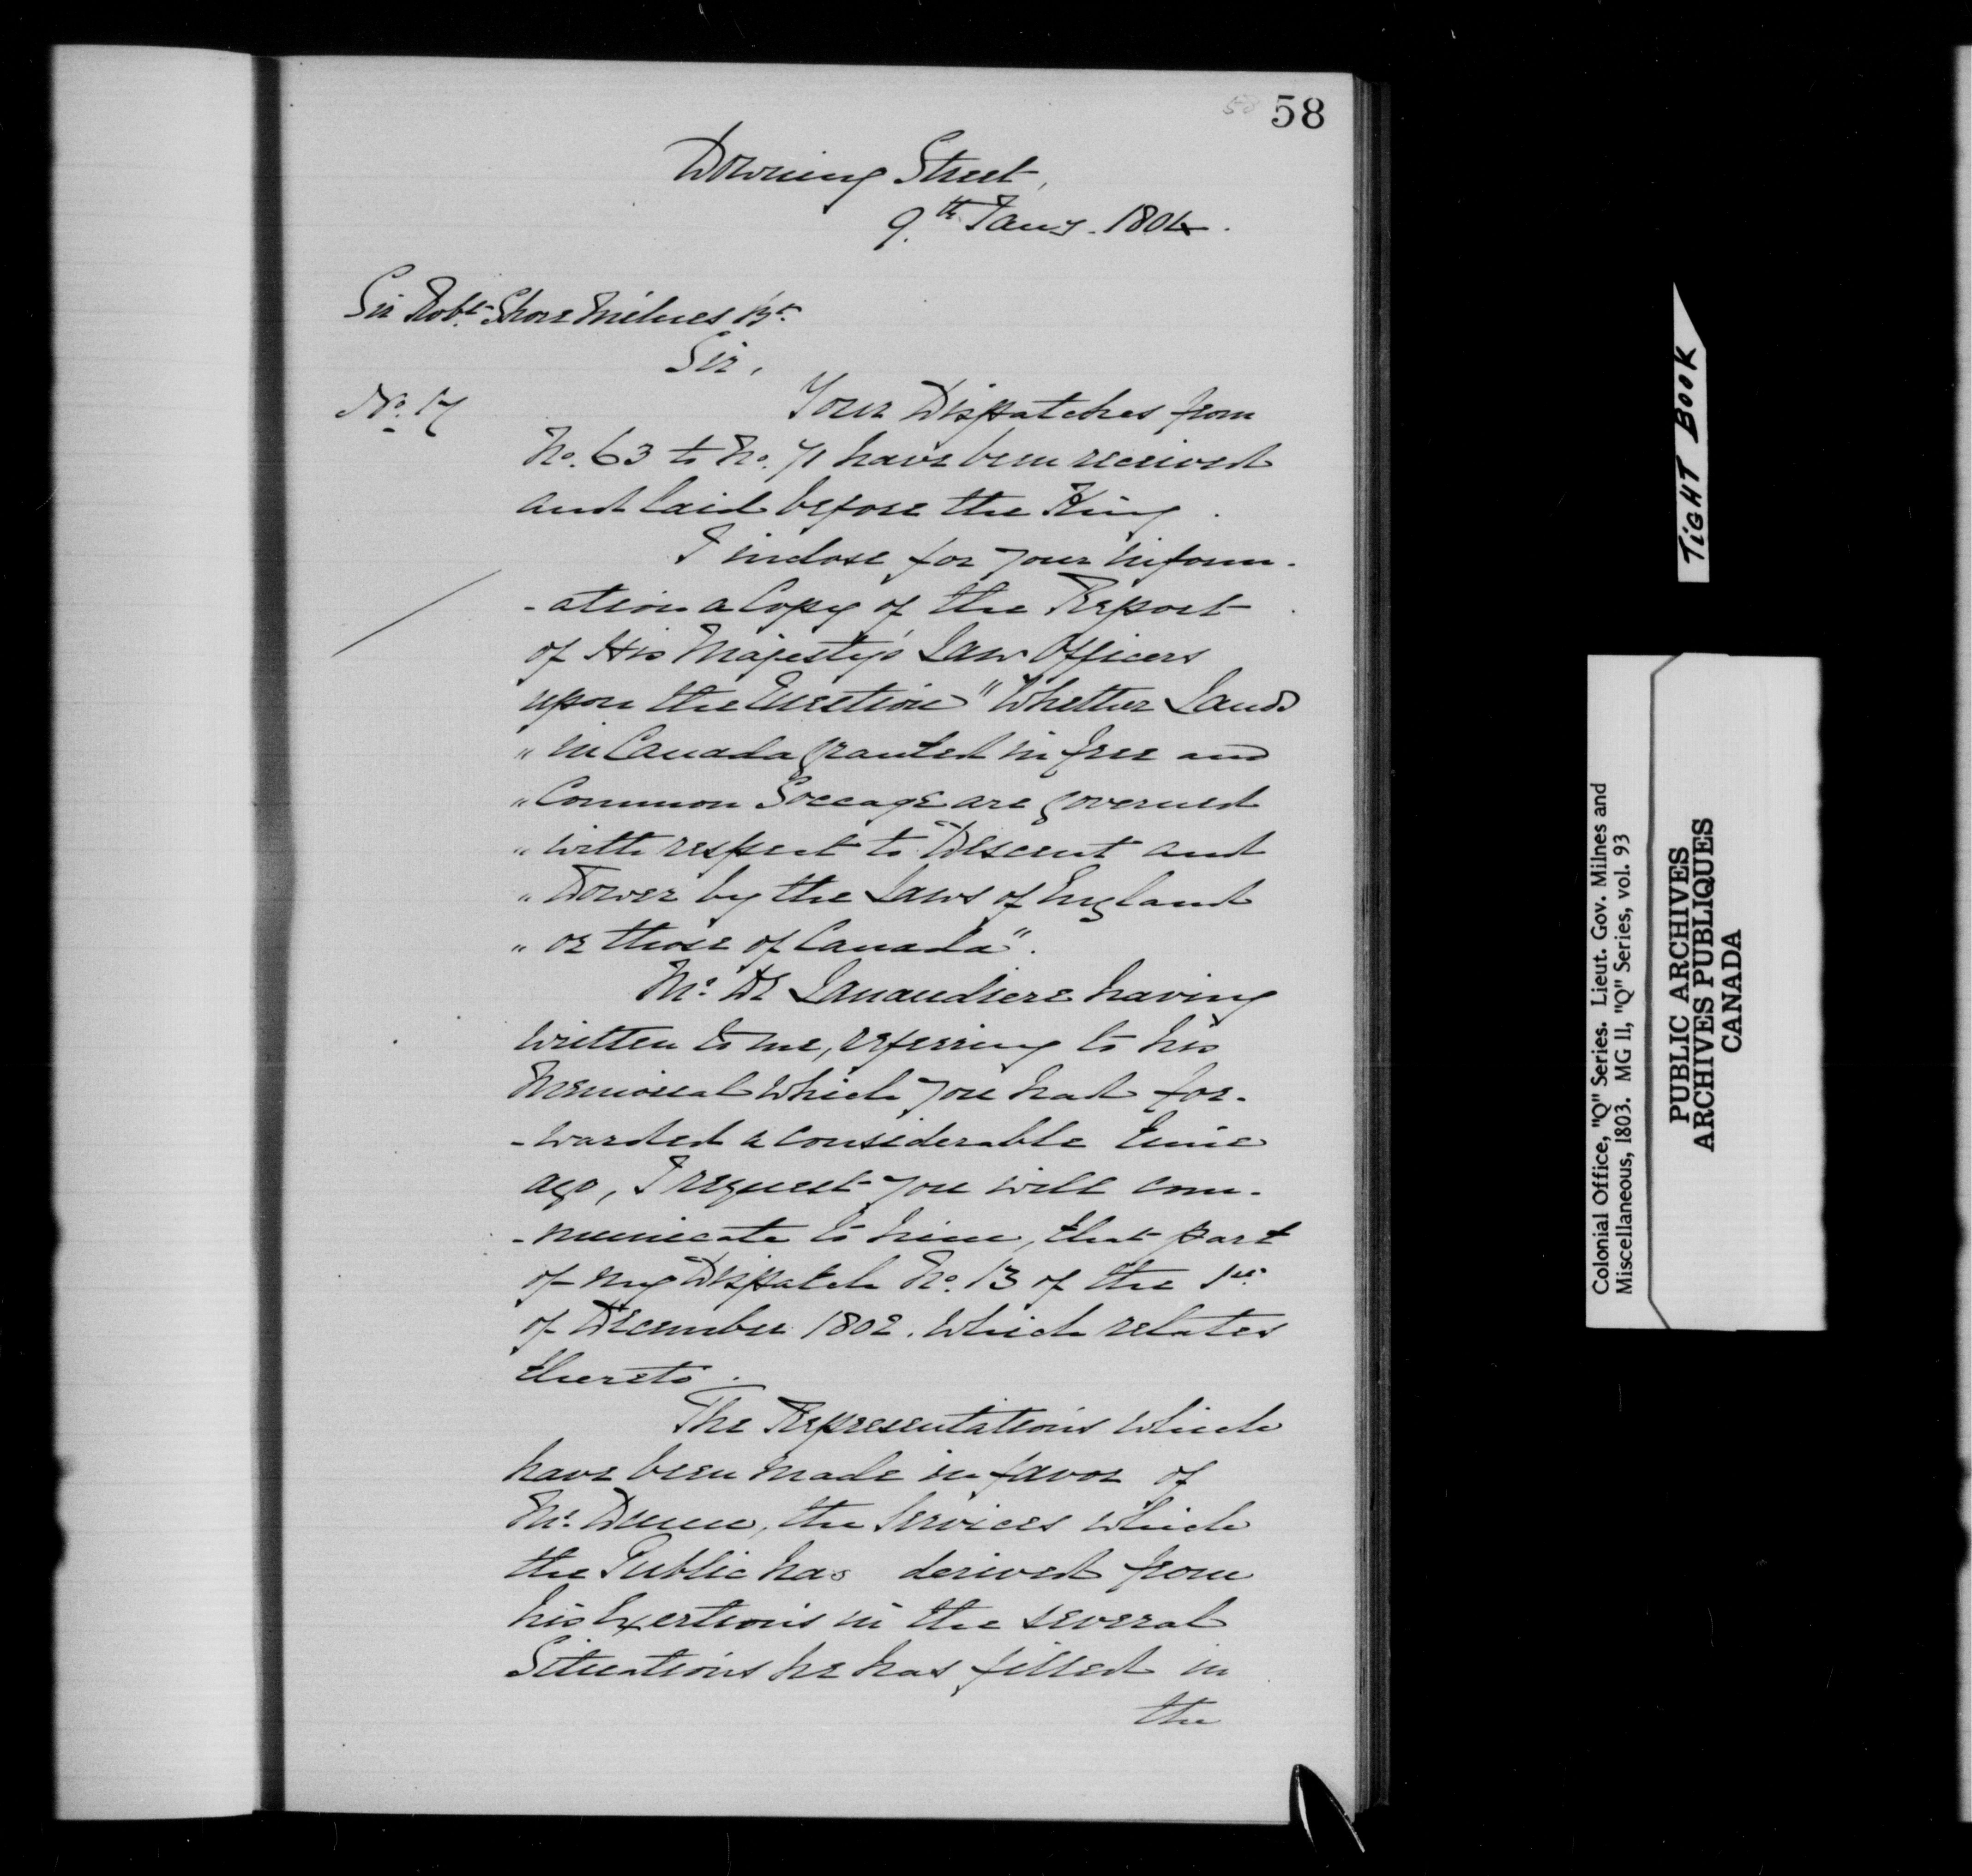 58 58
Downing Street,
9.th Jany. 1804.
Sir Robt. Shore Milnes Bt.
Sir,
No. 17
Your Dispatches from
No. 63 to No. 71 have been received
and laid before the King.
I inclose for your inform-
-ation a Copy of the Report
of His Majesty's Law Officers
upon the Question "Whether Lands
" in Canada granted in free and
" Common Soccage are governed
" with respect to Descent and
" Dower by the Laws of England
" or those of Canada".
Mr. De Lanaudiere having
written to me, referring to his
Memorial which you had for-
-warded a considerable time
ago, I request you will com-
-municate to him, that part
of my Dispatch No. 13 of the 1st.
of December 1802. which relates
thereto.
The Representations which
have been made in favor of
Mr. Dunn, the Services which
the Public has derived from
his Exertions in the several
Situations he has filled in
the
TIGHT BOOK
Colonial Office, "Q" Series. Lieut. Gov. Milnes and
Miscellaneous, 1803. MG 11, "Q" Series, vol. 93
PUBLIC ARCHIVES
ARCHIVES PUBLIQUES
CANADA